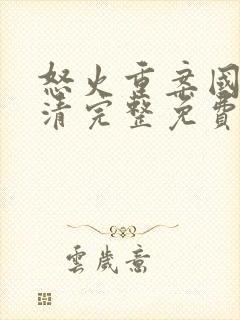 怒火重案國
清完整免費
雲歲意